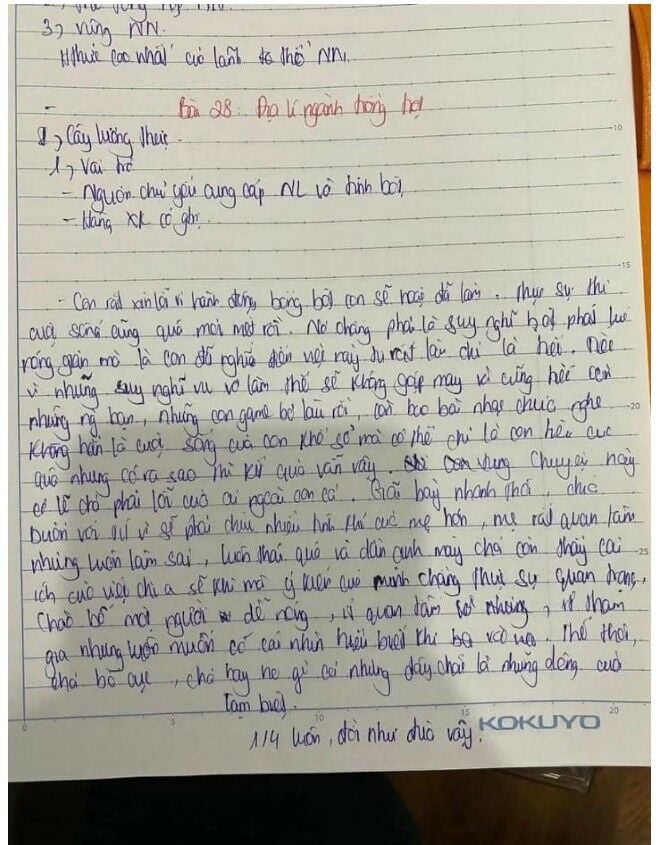 3, Vùng NN.
Hthức cao nhất của lãnh thổ NN.
Bài 28: Địa lí ngành trồng trọt
I, Cây lương thực.
1, Vai trò
- Nguồn chủ yếu cung cấp NL và tinh bột,
- Hàng XK có gtrị.
- Con rất xin lỗi vì hành động bồng bột con sẽ hoặc đã làm. Thực sự thì
cuộc sống cũng quá mỏi mệt rồi. Nó chẳng phải là suy nghĩ bột phát lúc
nóng giận mà là con đã nghĩ đến việc này từ rất lâu chỉ là hèn.
vì những suy nghĩ vu vơ lắm thế sẽ không gặp may và cũng hết
những ng bạn, những con game bỏ lâu rồi, còn bao bài nhạc chưa nghe
Không hẳn là cuộc sống của con khổ sở mà có thể chỉ là con hèn
quá nhưng có ra sao thì kết quả vẫn vậy. chuyện này
có lẽ chả phải lỗi của ai ngoài con cả. Giãi bày nhanh thôi, chắc
buồn với vì sẽ phải chịu nhiều tính khí của mẹ hơn, mẹ rất quan tâm
nhưng luôn làm sai, luôn thái quá và dần con thấy cái
ích của việc chia sẻ khi mà ý kiến của mình chẳng thực sự quan trọng.
Chào bố một người dễ nóng, ít quan tâm nhưng, ít tham
gia nhưng luôn muốn có cái nhìn hiểu biết khi Thế thôi,
chả bố cục, chả hay ho gì cả nhưng đây là những dòng cuối
Tạm biệt.
1/4 luôn, đời như đùa vậy.
KOKUYO
10
15
20
25
0
5
10
15
20